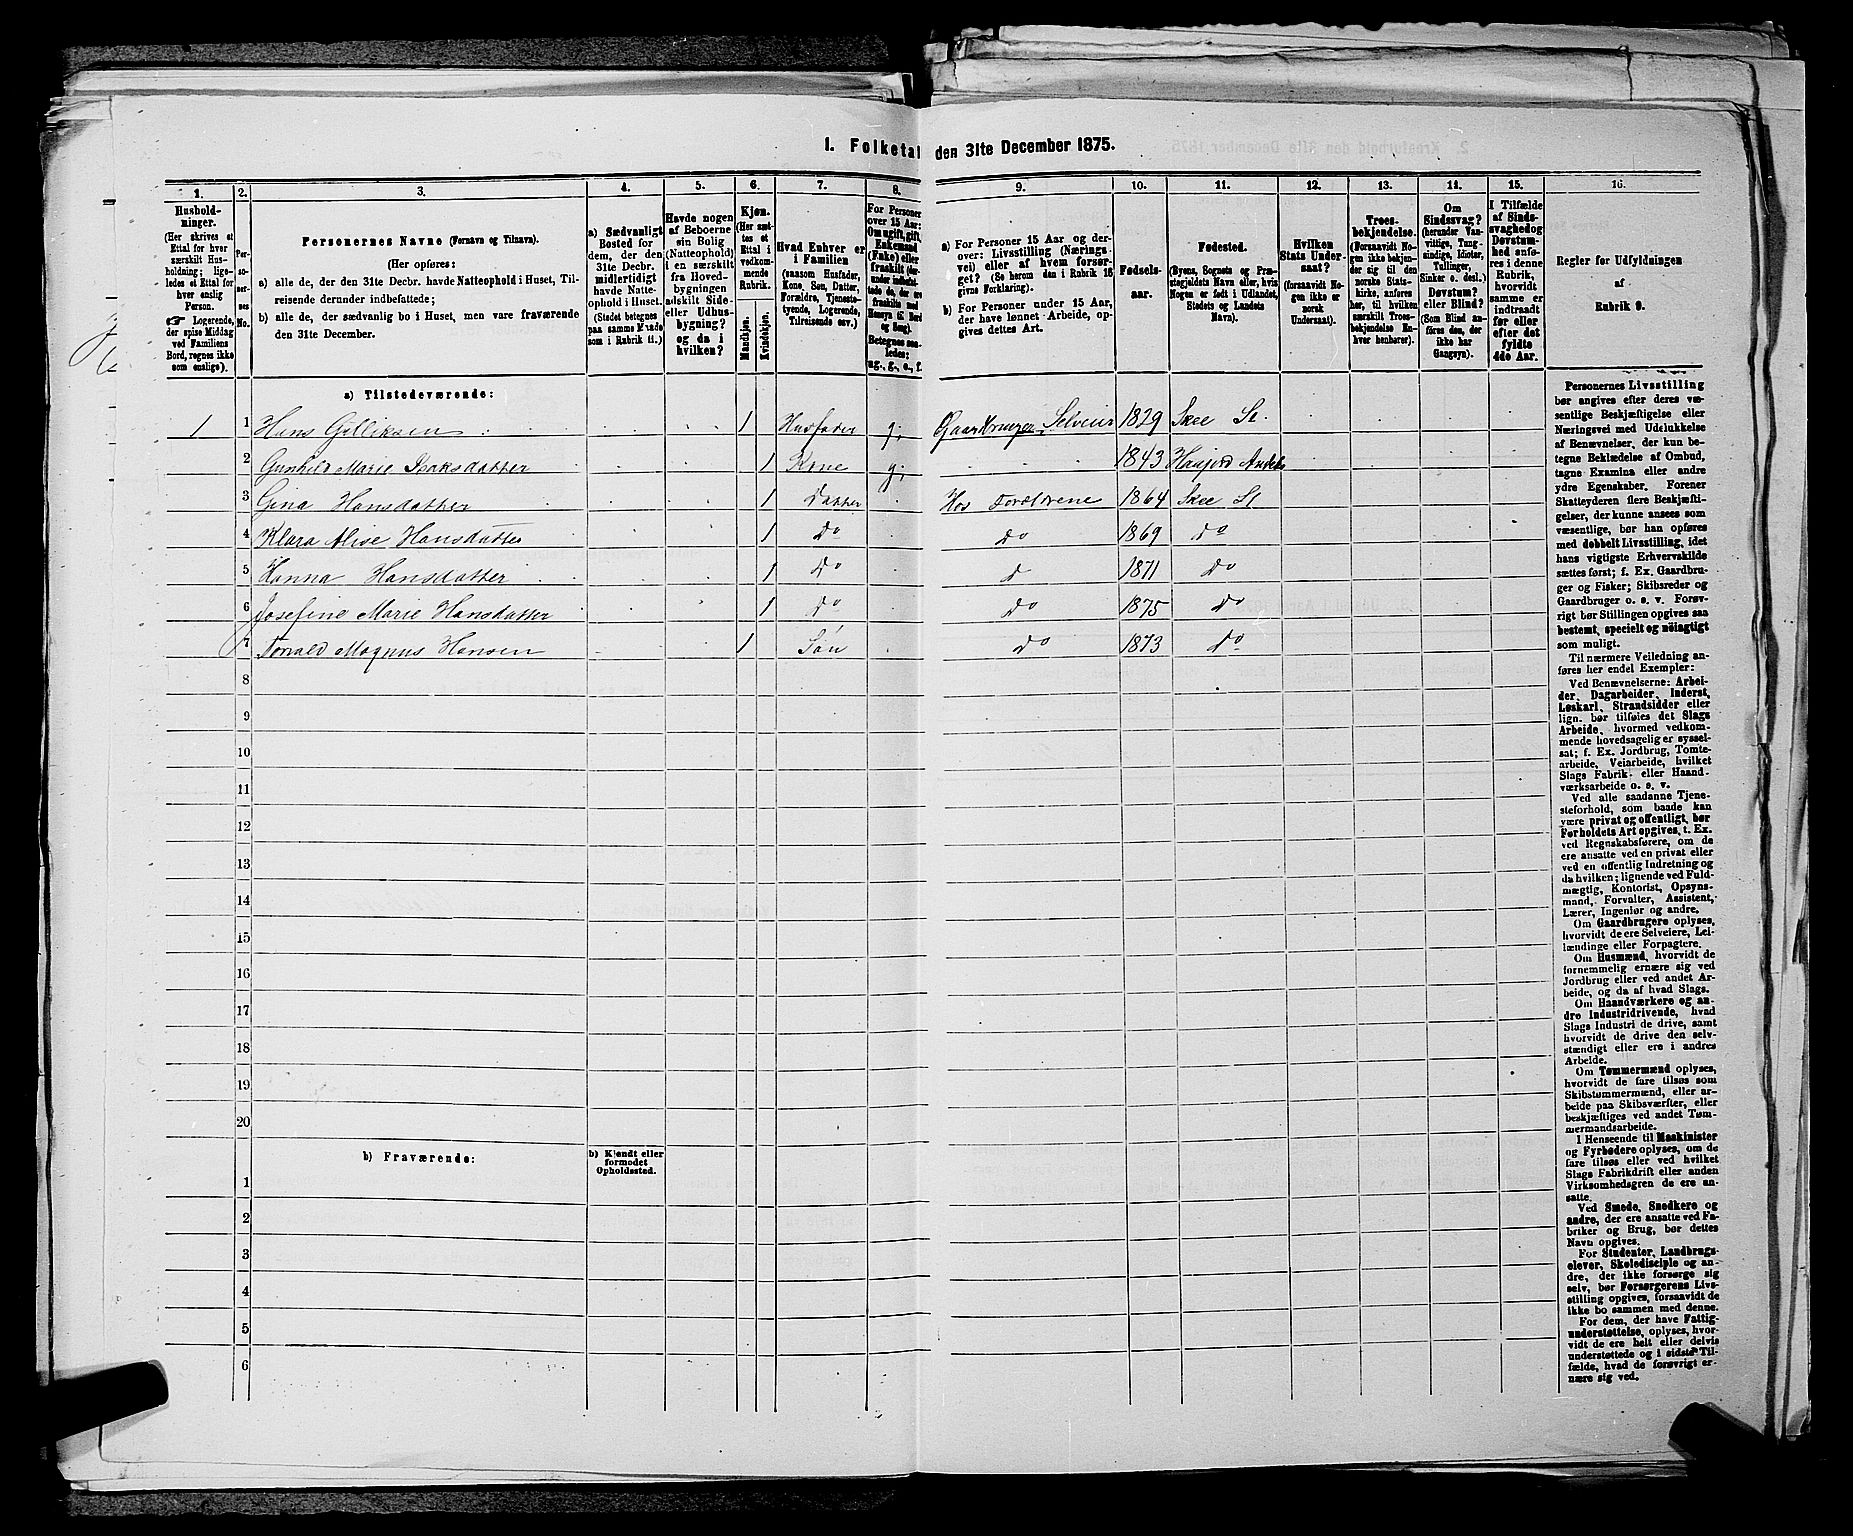 1. Folketal den 31te December 1875.
1. 2. 3. 4. 5. 6. 7. 8. 9. 10. 11. 12. 13. 14. 15. 16.
Husholdninger.
(Her skrives et Ettal for hver særskilt Husholdning; ligeledes et Ettal for hver enslig Person.
☞ Logerende, der spise Middag ved Familiens Bord, regnes ikke som enslige).
Personernes No.
Personernes Navne (Fornavn og Tilnavn).
(Her opføres:
a) alle de, der den 31te Decbr. havde Natteophold i Huset, Tilreisende derunder indbefattede;
b) alle de, der sædvanlig bo i Huset, men vare fraværende den 31te December.
a) Sædvanligt Bosted for dem, der den 31te Decbr. midlertidigt havde Natteophold i Huset. (Stedet betegnes paa samme Maade som i Rubrik 11.)
Havde nogen af Beboerne sin Bolig (Natteophold) i en særskilt fra Hovedbygningen adskilt Side- eller Udhusbygning? og da i hvilken?
Kjøn. (Her sættes et Ettal i vedkommende Rubrik.
Mandkjøn.
Kvindekjøn.
Hvad Enhver er i Familien
(saasom Husfader, Kone, Søn, Datter, Forældre, Tjenestetyende, Logerende, Tilreisende osv.)
For Personer over 15 Aar: Om ugift, gift, Enkemand (Enke) eller fraskilt
Betegnes saaledes:
ug., g., e., f.
a) For Personer 15 Aar og derover: Livsstilling (Næringsvei) eller af hvem forsørget? (Se herom den i Rubrik 16 givne Forklaring).
b) For Personer under 15 Aar, der have lønnet Arbeide, opgives dettes Art.
Fødselsaar.
Fødested.
(Byens, Sognets og Præstegjeldets Navn eller, hvis Nogen er født i Udlandet, Stedets og Landets Navn).
Hvilken Stats Undersaat?
(forsaavidt Nogen ikke er norsk Undersaat).
Troesbekjendelse.
(Forsaavidt Nogen ikke bekjender sig til den norske Statskirke, anføres her, til hvilken særskilt Troesbekjendelse Enhver henhører).
Om Sindssvag? (herunder Vanvittige, Tungsindige, Idioter, Tullinger, Sinker o. desl.) Døvstum? eller Blind? (Som Blind anføres den, der ikke har Gangsyn).
I Tilfælde af Sindssvaghed og Døvstumhed anføres i denne Rubrik, hvorvidt samme er indtraadt før eller efter det fyldte 4de Aar.
Regler for Udfyldningen
af
Rubrik 9.
a) Tilstedeværende:
1 1 Hans Gulliksen 1 Husfader g; Gaardbruger Selveier 1829 Skee St.
2 Gunhild Marie Isaksdatter 1 Kone g; 1843
3 Gina Hansdatter 1 Datter Hos Forældrene 1864 Skee St
4 Klara Alise Hansdatter 1 Do Do 1869 Do
5 Hanna Hansdatter 1 Do D 1871 Do
6 Josefine Marie Hansdatter 1 Do Do 1875 Do
7 Torvald Magnus Hansen 1 Søn Do 1873 Do
8
9
10
11
12
13
14
15
16
17
18
19
20
b) Fraværende: b) Kjendt eller formodet Opholdssted.
1
2
3
4
5
6
Personernes Livsstilling
bør angives efter deres væsentlige Beskjæftigelse eller
Næringsvei med Udelukkelse
af Benævnelser, der kun betegne Beklædelse af Ombud,
tagne Examina eller andre
ydre Egenskaber. Forener
Skatteyderen flere Beskjæftigelser, der kunne ansees som
væsentlige, bør han opføres
med dobbelt Livsstilling, idet
hans vigtigste Erhvervskilde
sættes først; f. Ex. Gaardbruger og Fisker; Skibsreder og
Gaardbruger o. s. v. Forøvrigt bør Stillingen opgives saa
bestemt, specielt og nøiagtigt
som muligt.
Til nærmere Veiledning anføres her endel Exempler:
Ved Benævnelserne: Arbeider, Dagarbeider, Inderst,
Løskarl, Strandsidder eller
lign. bør tilføies det Slags
Arbeide, hvormed vedkommende hovedsagelig er sysselsat; f. Ex. Jordbrug, Tomtearbeide, Veiarbeide, hvilket
Slags Fabrik- eller Haandværksarbeide o. s. v.
Ved alle saadanne Tjenesteforhold, som baade kan
være privat og offentligt, bør
Forholdets Art opgives, t. Ex.
ved Regnskabsførere, om de
ere ansatte ved en privat eller
ved en offentlig Indretning og
da hvilken; lignende ved Fuldmægtig, Kontorist, Opsynsmand, Forvalter, Assistent,
Lærer, Ingeniør og andre.
Om Gaardbrugere oplyses,
hvorvidt de ere Selveiere, Leilændinge eller Forpagtere.
Om Husmænd, hvorvidt de
fornemmelig ernære sig ved
Jordbrug eller ved andet Arbeide, og da af hvad Slags.
Om Haandværkere og andre Industridrivende, hvad
Slags Industri de drive, samt
hvorvidt de drive den selvstændigt eller ere i andres
Arbeide.
Om Tømmermænd oplyses,
hvorvidt de fare tilsøs som
Skibstømmermænd, eller arbeide paa Skibsværfter, eller
beskjæftiges ved andet Tømmermandsarbeide.
I Henseende til Maskinister
og Fyrbødere oplyses, om de
fare tilsøs eller ved hvilket
Slags Fabrikdrift eller anden
Virksomhedsgren de ere ansatte.
Ved Smede, Snedkere og
andre, der ere ansatte ved Fabriker og Brug, bør dettes
Navn opgives.
For Studenter, Landbrugselever, Skoledisciple og andre, der ikke forsørge sig
selv, bør Forsørgerens Livsstilling opgives, forsaavidt de
ikke bo sammen med denne.
For dem, der have Fattigunderstøttelse, oplyses, hvorvidt de ere helt eller delvis
understøttede og i sidste Tilfælde, hvad de forøvrigt ernære sig ved.